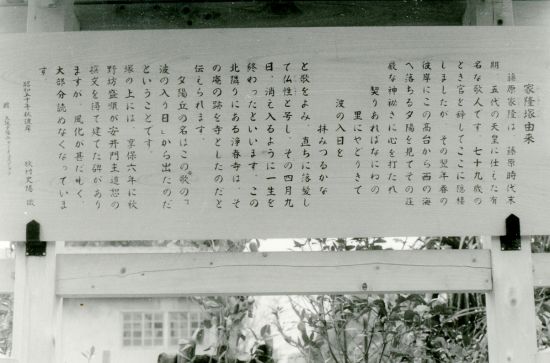 家隆塚由来
藤原家隆は、藤原時代末
期、五代の天皇に仕えた有
名な歌人です。七十九歳の
とき官を辞してここに隠棲
しましたが、その翌年春の
彼岸にこの高台から西の海
へ落ちる夕陽を見てその荘
厳な神秘さに心を打たれ
契りあればなにわの
里にやどりきて
波の入日を
拝みつるかな
と歌をよみ、直ちに落髪し
て仏性と号し、その四月九
日、消え入るように一生を
終わったといいます。この
北隣りにある浄春寺は、そ
の庵の跡に寺としたのだと
伝えられます。
夕陽丘の名はこの歌の「
波の入り日」から出たのだ
ということです。
塚の上には、享保六年に秋
野坊盛順が安井門主道恕の
撰文を得て建てた碑があり
ますが、風化が甚だしく、
大部分読めなくなっていま
す。
昭和五十年秋彼岸